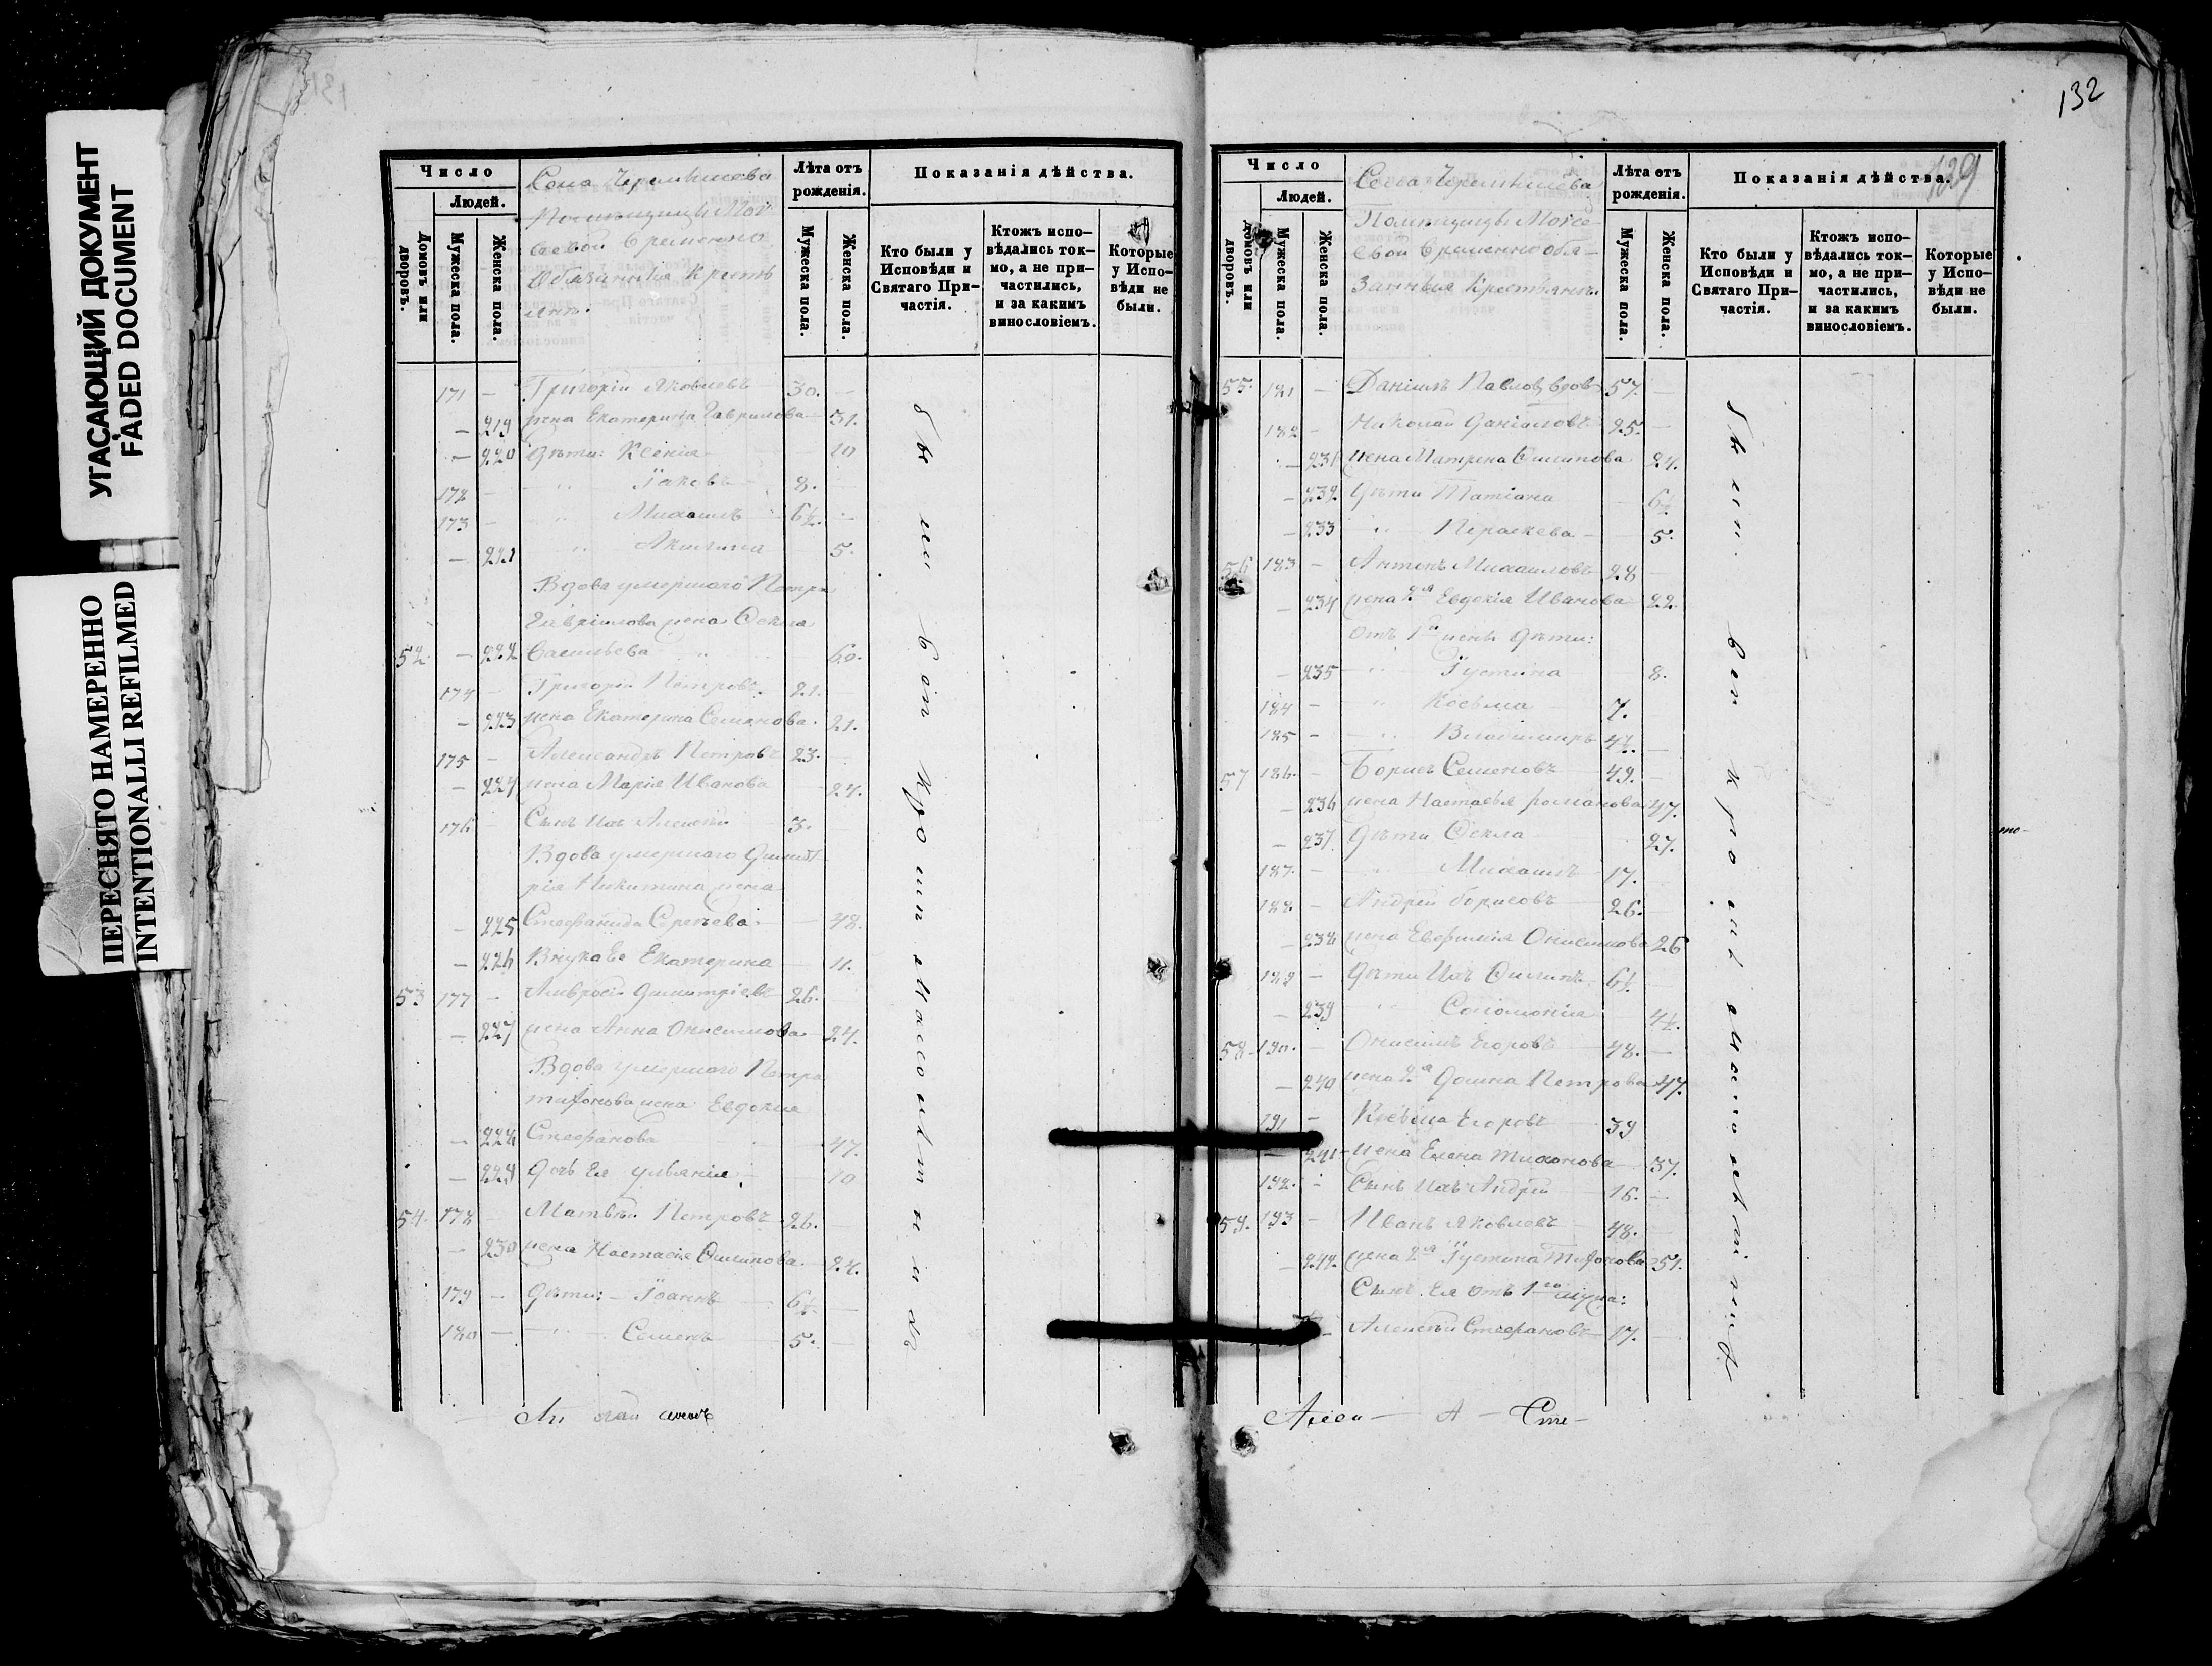 УГАСАЮЩИЙ ДОКУМЕНТ
FADED DOCUMENT
ПЕРЕСНЯТО НАМЕРЕННО
INTENTIONALLI REFILMED
Число
Людей.
Домовъ или дворовъ.
Мужеска пола.
Женска пола.
Села
временно
Обязанныя Крестъ
янъ.
Лѣта отъ рожденія.
Мужеска пола.
Женска пола.
Показанія дѣйства.
Кто были у Исповѣди и Святаго При-
частія.
Ктожъ испо-
вѣдались ток-
мо, а не при-
частились,
и за какимъ
винословіемъ.
Которые
у Испо-
вѣди не
были.
171 – Григорій Яковлевъ 30.
– 219 жена Екатерина Гаврилова 31.
– 220 дѣти: Ксенія 10
172 – " Іаковъ 8.
173 – " Михаилъ 6½.
– 221 " Акилина 5.
Вдова умершаго Петра
Гавріилова жена Ѳекла
52. – 222 Васильева 60.
174 – Григорій Петровъ 21.
– 223 жена Екатерина Семенова 21.
175 – Александръ Петровъ 23.
– 224 жена Марія Иванова 24.
176 – Сынъ ихъ Алексѣй 3.
Вдова умершаго Димит
рія Никитина жена
– 225 Стефанида Сергѣева 48.
– 226 Внука Ея Екатерина 11.
53 177 – Амвросій Димитріевъ 26.
– 227 жена Анна Онисимова 24.
Вдова умершаго Петра
Тифонова жена Евдокия
– 228 Стефанова 47.
– 229 дочь Ея Ульянія 10
54. 178 Матвѣй Петровъ 26.
– 230 жена Настасія Филипова 24.
179 – дѣти: – Іоаннъ 6½.
180 – " Семенъ 5.
были вси кро
132
129
Число
Людей.
Домовъ или дворовъ.
Мужеска пола.
Женска пола.
Села
временнообя-
занныя Крестьянъ.
Лѣта отъ рожденія.
Мужеска пола.
Женска пола.
Показанія дѣйства.
Кто были у
Исповѣди и
Святаго При-
частія.
Ктожъ испо-
вѣдались ток-
мо, а не при-
частились,
и за какимъ
винословіемъ.
Которые
у Испо-
вѣди не
были.
55. 181 – Даніилъ Павловъ вдов 57.
182 – Николай Даніиловъ 25.
– 231 жена Матрена Филипова 24.
– 232 Дѣти Татіана 6½
– 233 " Параскева 5.
56 183 – Антонъ Михаиловъ 28
– 234 жена 2я Евдокія Иванова 22.
Отъ 1й жены дѣти:
– 235 " Іустина 8.
184 – " Косьма 7.
185 – " Владимиръ 4½.
57 186 – Борисъ Семеновъ 49.
– 236 жена Настасья романова 47.
– 237 дѣти Ѳекла 27.
187 – " Михаилъ 17.
188 – Андрей борисовъ 26.
– 238 жена Евфимія Онисимова 26
189 – Дѣти Ихъ Филипъ 6½.
– 239 " Соломонія 4½.
58 190 – Онисимъ Егоровъ 48.
– 240 жена 2я Домна Петрова 47.
191 – Косьма Егоровъ 39
– 241 жена Елена Тихонова 37.
192 – Сынъ Ихъ Андрей 16.
59. 193 – Иванъ Яковлевъ 48.
– 242 жена 2я Іустина Тифонова 51.
Сынъ Ея отъ 1го мужа:
Алексѣй Стефановъ 17.
были вси кро